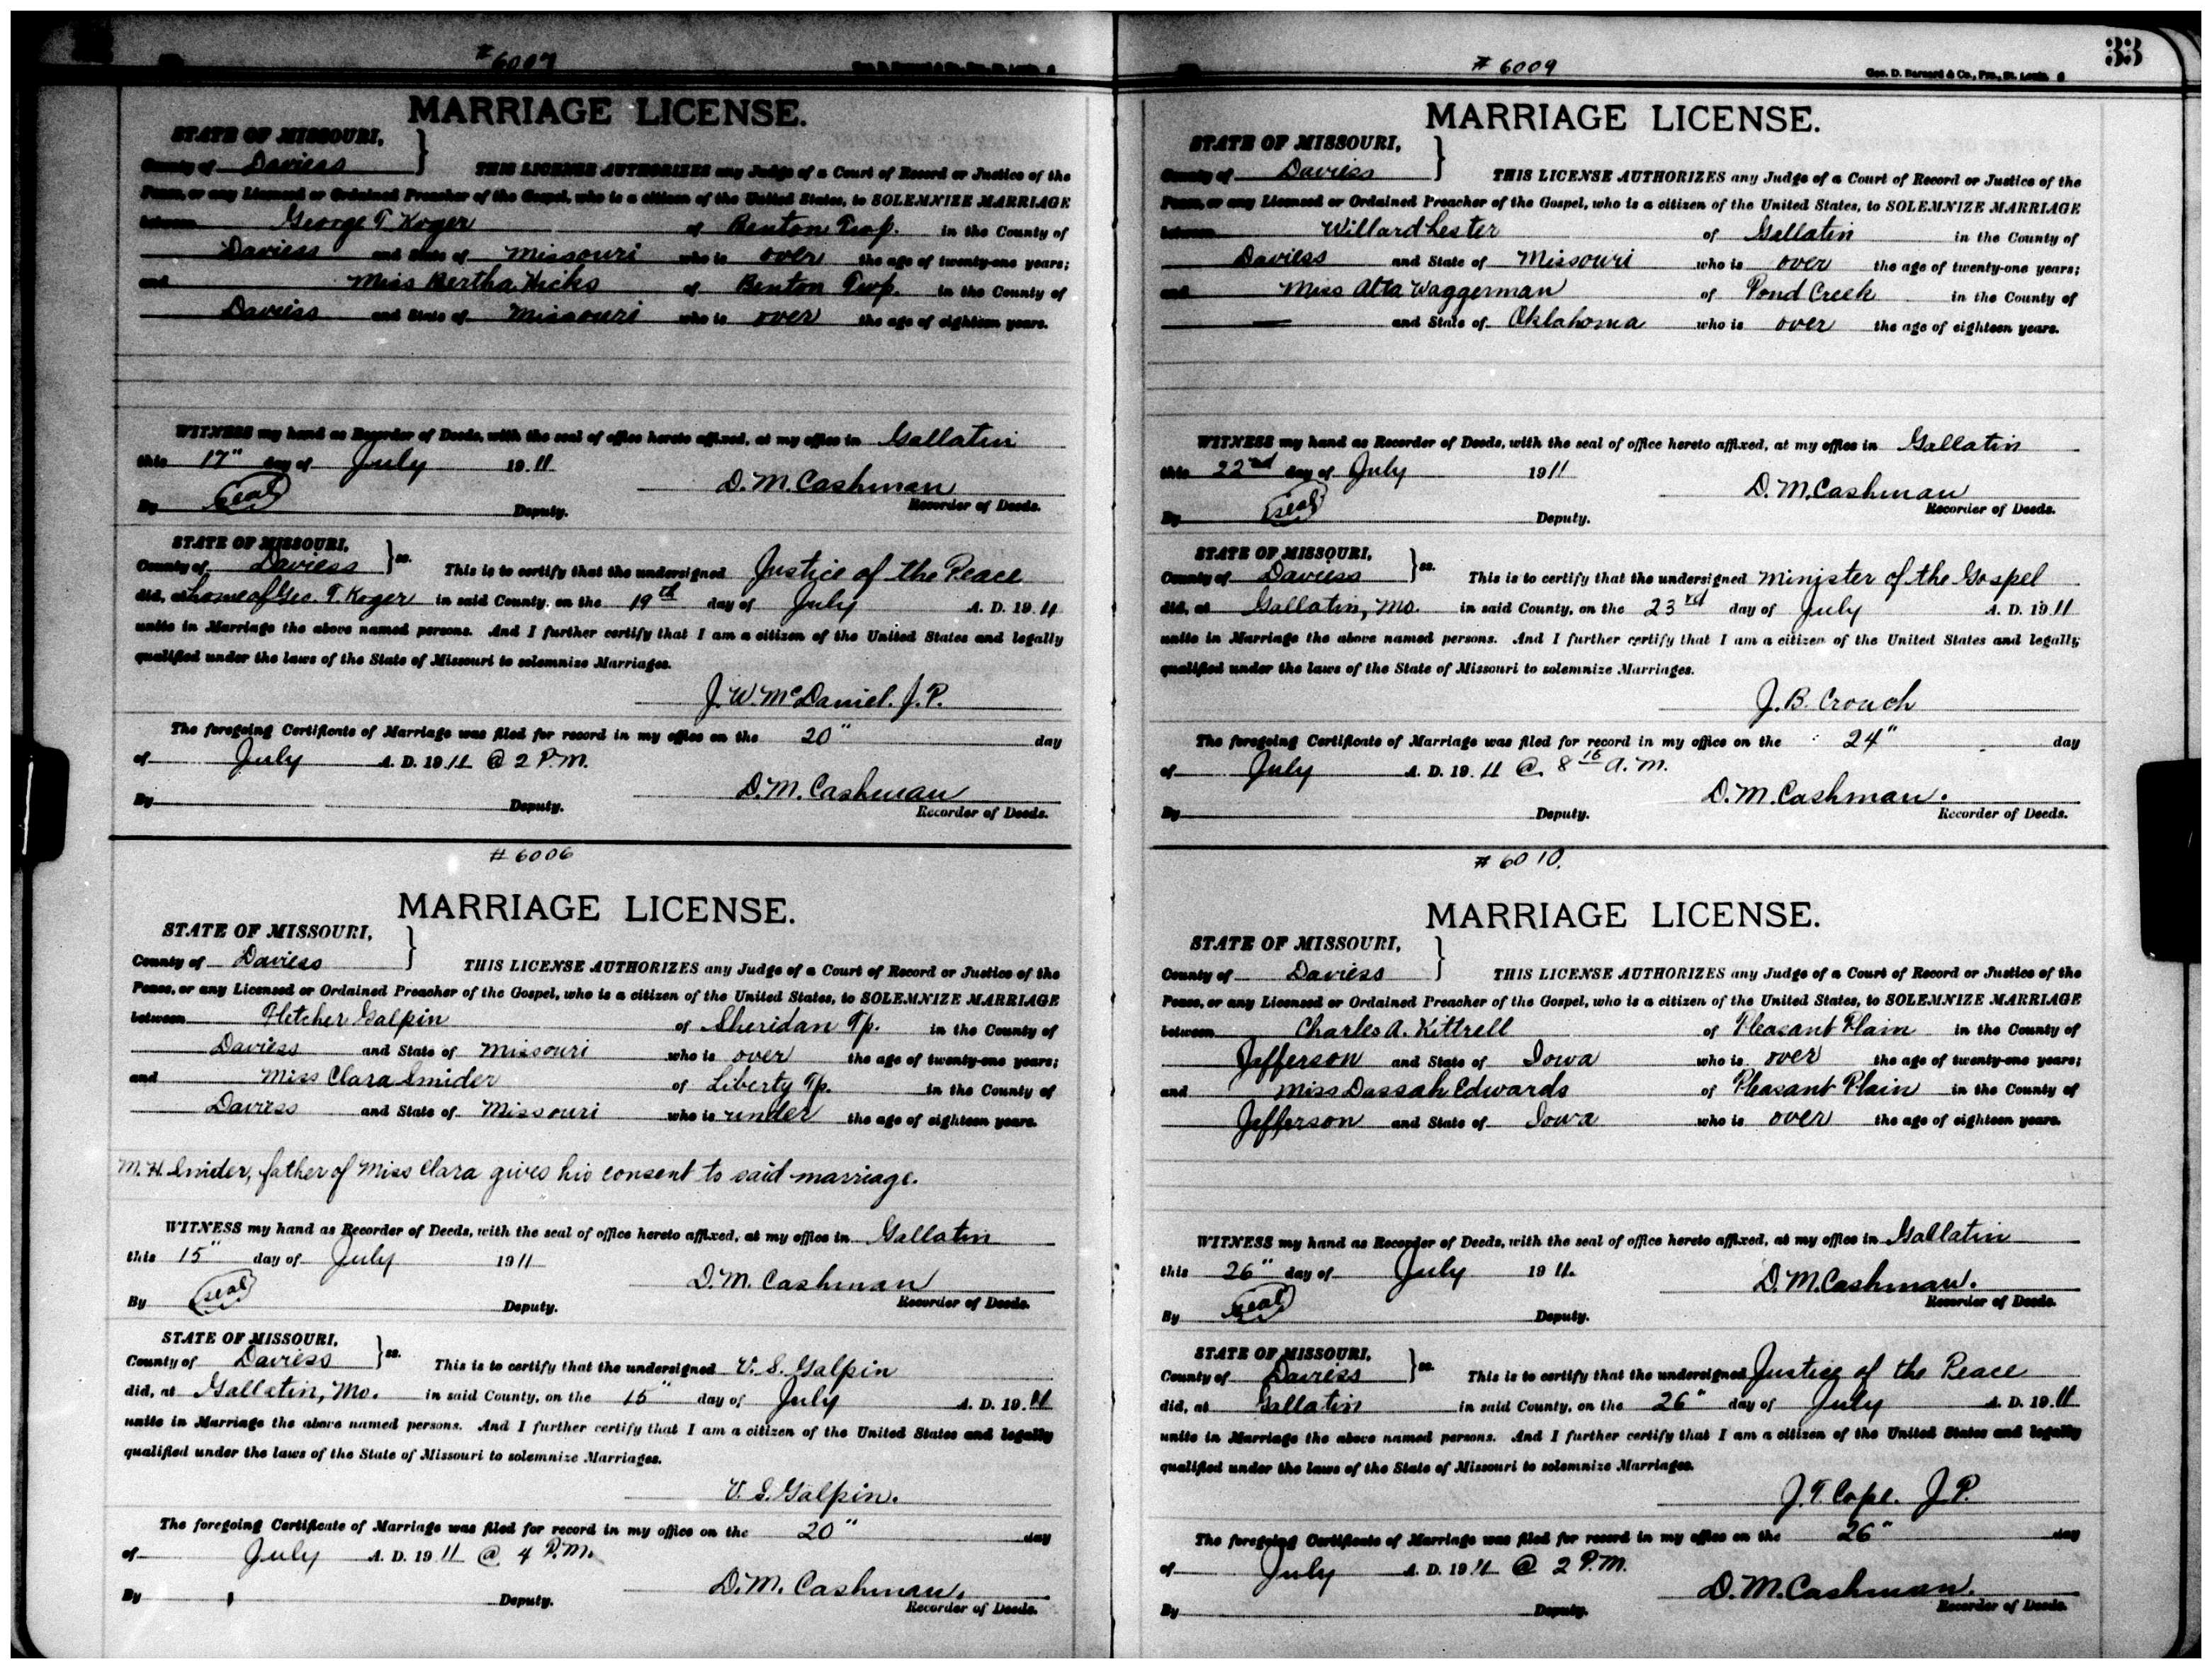 # 6007
MARRIAGE LICENSE.
STATE OF MISSOURI,
County of Daviess
THIS LICENSE AUTHORIZES any Judge of a Court of Record or Justice of the
Peace, or any Licensed or Ordained Preacher of the Gospel, who is a citizen of the United States, to SOLEMNIZE MARRIAGE
between George T. Koger of Benton Twp. in the County of
Daviess and State of Missouri who is over the age of twenty-one years;
and Miss Bertha Hicks of Benton Twp. in the County of
Daviess and State of Missouri who is over the age of eighteen years.
WITNESS my hand as Recorder of Deeds, with the seal of office hereto affixed, at my office in Gallatin
this 17" day of July 1911
D. M. Cashman
By (seal) Deputy. Recorder of Deeds.
STATE OF MISSOURI,
County of Daviess } ss. This is to certify that the undersigned Justice of the Peace
did, at home of Geo. T. Koger in said County, on the 19th day of July A. D. 1911
unite in Marriage the above named persons. And I further certify that I am a citizen of the United States and legally
qualified under the laws of the State of Missouri to solemnize Marriages.
J. W. McDaniel. J. P.
The foregoing Certificate of Marriage was filed for record in my office on the 20" day
of July A. D. 1911 @ 2 P.M.
D. M. Cashman
By Deputy. Recorder of Deeds.
# 6006
MARRIAGE LICENSE.
STATE OF MISSOURI,
County of Daviess
THIS LICENSE AUTHORIZES any Judge of a Court of Record or Justice of the
Peace, or any Licensed or Ordained Preacher of the Gospel, who is a citizen of the United States, to SOLEMNIZE MARRIAGE
between Fletcher Galpin of Sheridan Tp. in the County of
Daviess and State of Missouri who is over the age of twenty-one years;
and Miss Clara Smider of Liberty Tp. in the County of
Daviess and State of Missouri who is under the age of eighteen years.
M. H. Smider, father of Miss Clara gives his consent to said marriage.
WITNESS my hand as Recorder of Deeds, with the seal of office hereto affixed, at my office in Gallatin
this 15" day of July 1911
D. M. Cashman
By (seal) Deputy. Recorder of Deeds.
STATE OF MISSOURI,
County of Daviess } ss. This is to certify that the undersigned V. S. Galpin
did, at Gallatin, Mo. in said County, on the 15" day of July A. D. 1911
unite in Marriage the above named persons. And I further certify that I am a citizen of the United States and legally
qualified under the laws of the State of Missouri to solemnize Marriages.
V. S. Galpin.
The foregoing Certificate of Marriage was filed for record in my office on the 20" day
of July A. D. 1911 @ 4 P.M.
D. M. Cashman.
By Deputy. Recorder of Deeds.
33
# 6009
Geo. D. Barnard & Co., Pro., St. Louis.
MARRIAGE LICENSE.
STATE OF MISSOURI,
County of Daviess
THIS LICENSE AUTHORIZES any Judge of a Court of Record or Justice of the
Peace, or any Licensed or Ordained Preacher of the Gospel, who is a citizen of the United States, to SOLEMNIZE MARRIAGE
between Willard Lester of Gallatin in the County of
Daviess and State of Missouri who is over the age of twenty-one years;
and Miss Alta Waggerman of Pond Creek in the County of
— and State of Oklahoma who is over the age of eighteen years.
WITNESS my hand as Recorder of Deeds, with the seal of office hereto affixed, at my office in Gallatin
this 22nd day of July 1911
D. M. Cashman
By (seal) Deputy. Recorder of Deeds.
STATE OF MISSOURI,
County of Daviess } ss. This is to certify that the undersigned Minister of the Gospel
did, at Gallatin, Mo. in said County, on the 23rd day of July A. D. 1911
unite in Marriage the above named persons. And I further certify that I am a citizen of the United States and legally
qualified under the laws of the State of Missouri to solemnize Marriages.
J. B. Crouch
The foregoing Certificate of Marriage was filed for record in my office on the 24" day
of July A. D. 1911 @ 8 15 A. M.
D. M. Cashman.
By Deputy. Recorder of Deeds.
# 6010.
MARRIAGE LICENSE.
STATE OF MISSOURI,
County of Daviess
THIS LICENSE AUTHORIZES any Judge of a Court of Record or Justice of the
Peace, or any Licensed or Ordained Preacher of the Gospel, who is a citizen of the United States, to SOLEMNIZE MARRIAGE
between Charles A. Kittrell of Pleasant Plain in the County of
Jefferson and State of Iowa who is over the age of twenty-one years;
and Miss Dassah Edwards of Pleasant Plain in the County of
Jefferson and State of Iowa who is over the age of eighteen years.
WITNESS my hand as Recorder of Deeds, with the seal of office hereto affixed, at my office in Gallatin
this 26" day of July 1911.
D. M. Cashman.
By (seal) Deputy. Recorder of Deeds.
STATE OF MISSOURI,
County of Daviess } ss. This is to certify that the undersigned Justice of the Peace
did, at Gallatin in said County, on the 26" day of July A. D. 1911
unite in Marriage the above named persons. And I further certify that I am a citizen of the United States and legally
qualified under the laws of the State of Missouri to solemnize Marriages.
J. T. Cope. J. P.
The foregoing Certificate of Marriage was filed for record in my office on the 26" day
of July A. D. 1911 @ 2 P.M.
D. M. Cashman.
By Deputy. Recorder of Deeds.